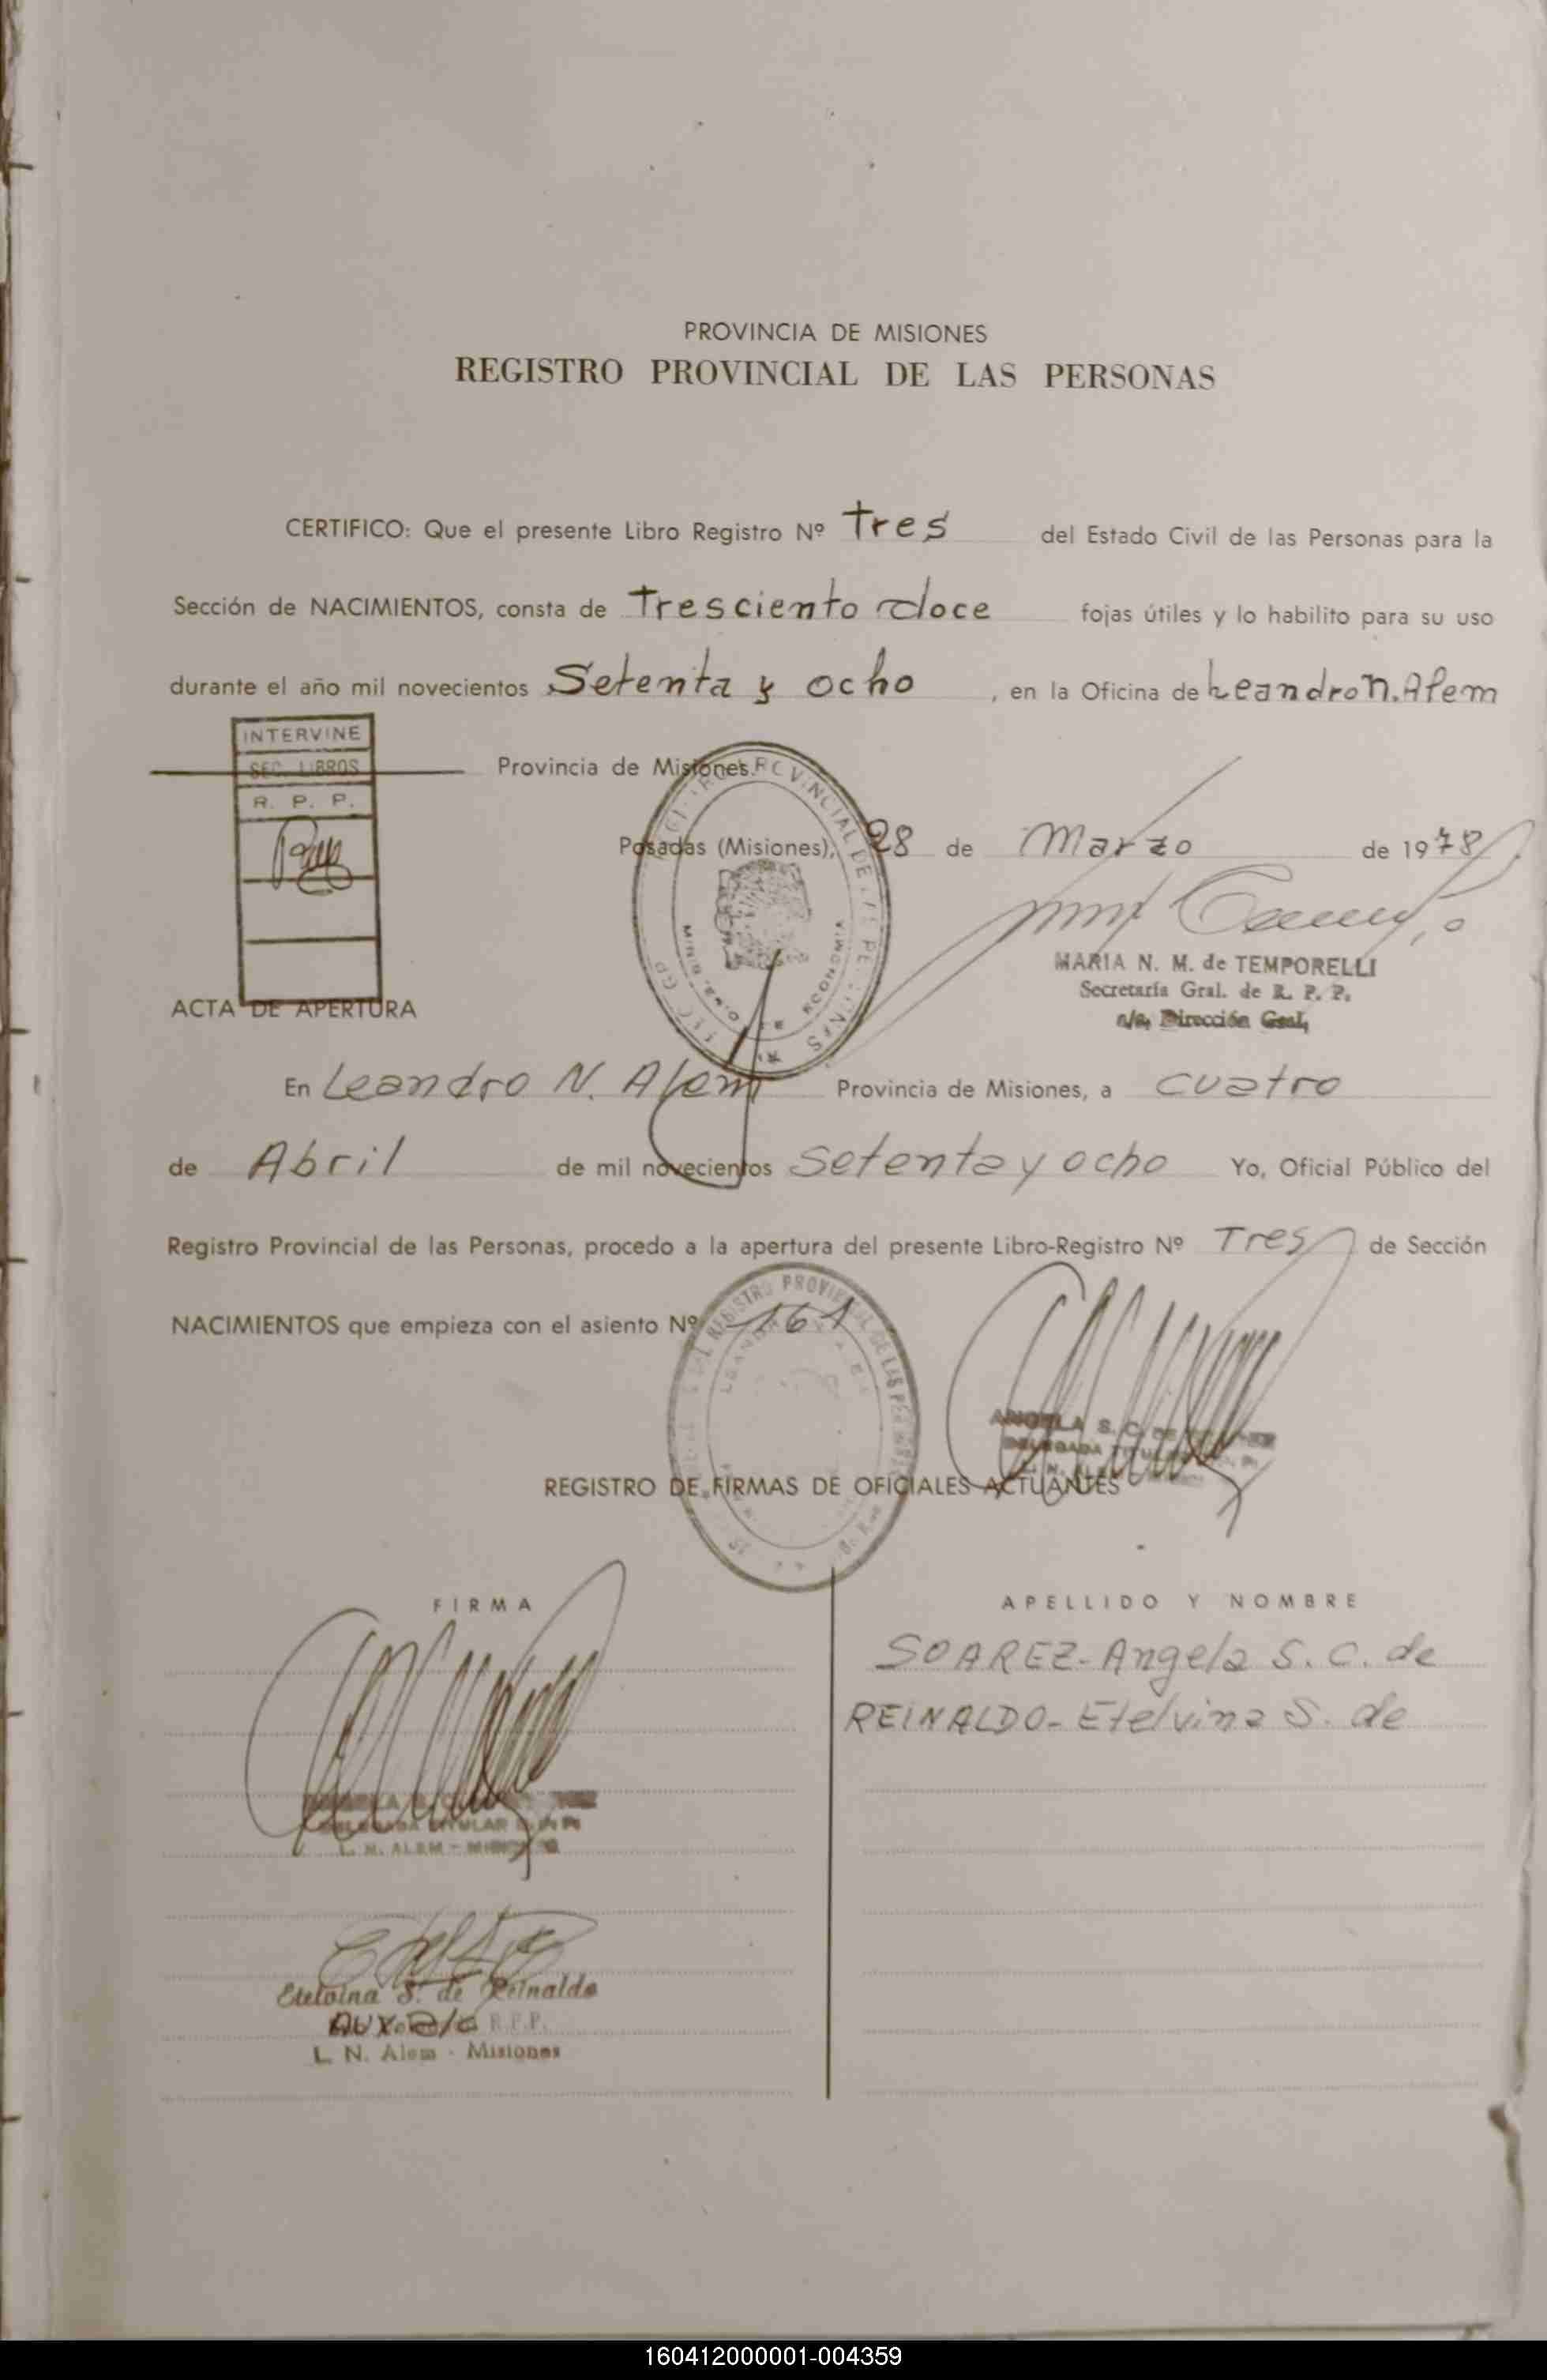 PROVINCIA DE MISIONES
REGISTRO PROVINCIAL DE LAS PERSONAS
CERTIFICO: Que el presente Libro Registro Nº Tres del Estado Civil de las Personas para la
Sección de NACIMIENTOS, consta de Tresciento doce fojas útiles y lo habilito para su uso
durante el año mil novecientos Setenta y ocho, en la Oficina de Leandro N. Alem
INTERVINE
SEC. LIBROS
R. P. P.
Provincia de Misiones.
Posadas (Misiones), 28 de Marzo de 1978
MARIA N. M. de TEMPORELLI
Secretaría Gral. de R. P. P.
a/c. Dirección Gral.
ACTA DE APERTURA
En Leandro N. Alem Provincia de Misiones, a cuatro
de Abril de mil novecientos Setenta y ocho Yo, Oficial Público del
Registro Provincial de las Personas, procedo a la apertura del presente Libro-Registro Nº Tres de Sección
NACIMIENTOS que empieza con el asiento Nº 161
ANGELA S. C. DE
DELEGADA TITULAR
REGISTRO DE FIRMAS DE OFICIALES ACTUANTES
FIRMA
APELLIDO Y NOMBRE
SOAREZ - Angela S. C. de
REINALDO - Etelvina S. de
DELEGADA TITULAR
L. N. ALEM - MISIONES
Etelvina S. de Reinaldo
AUX. R.P.P.
L. N. Alem - Misiones
160412000001-004359